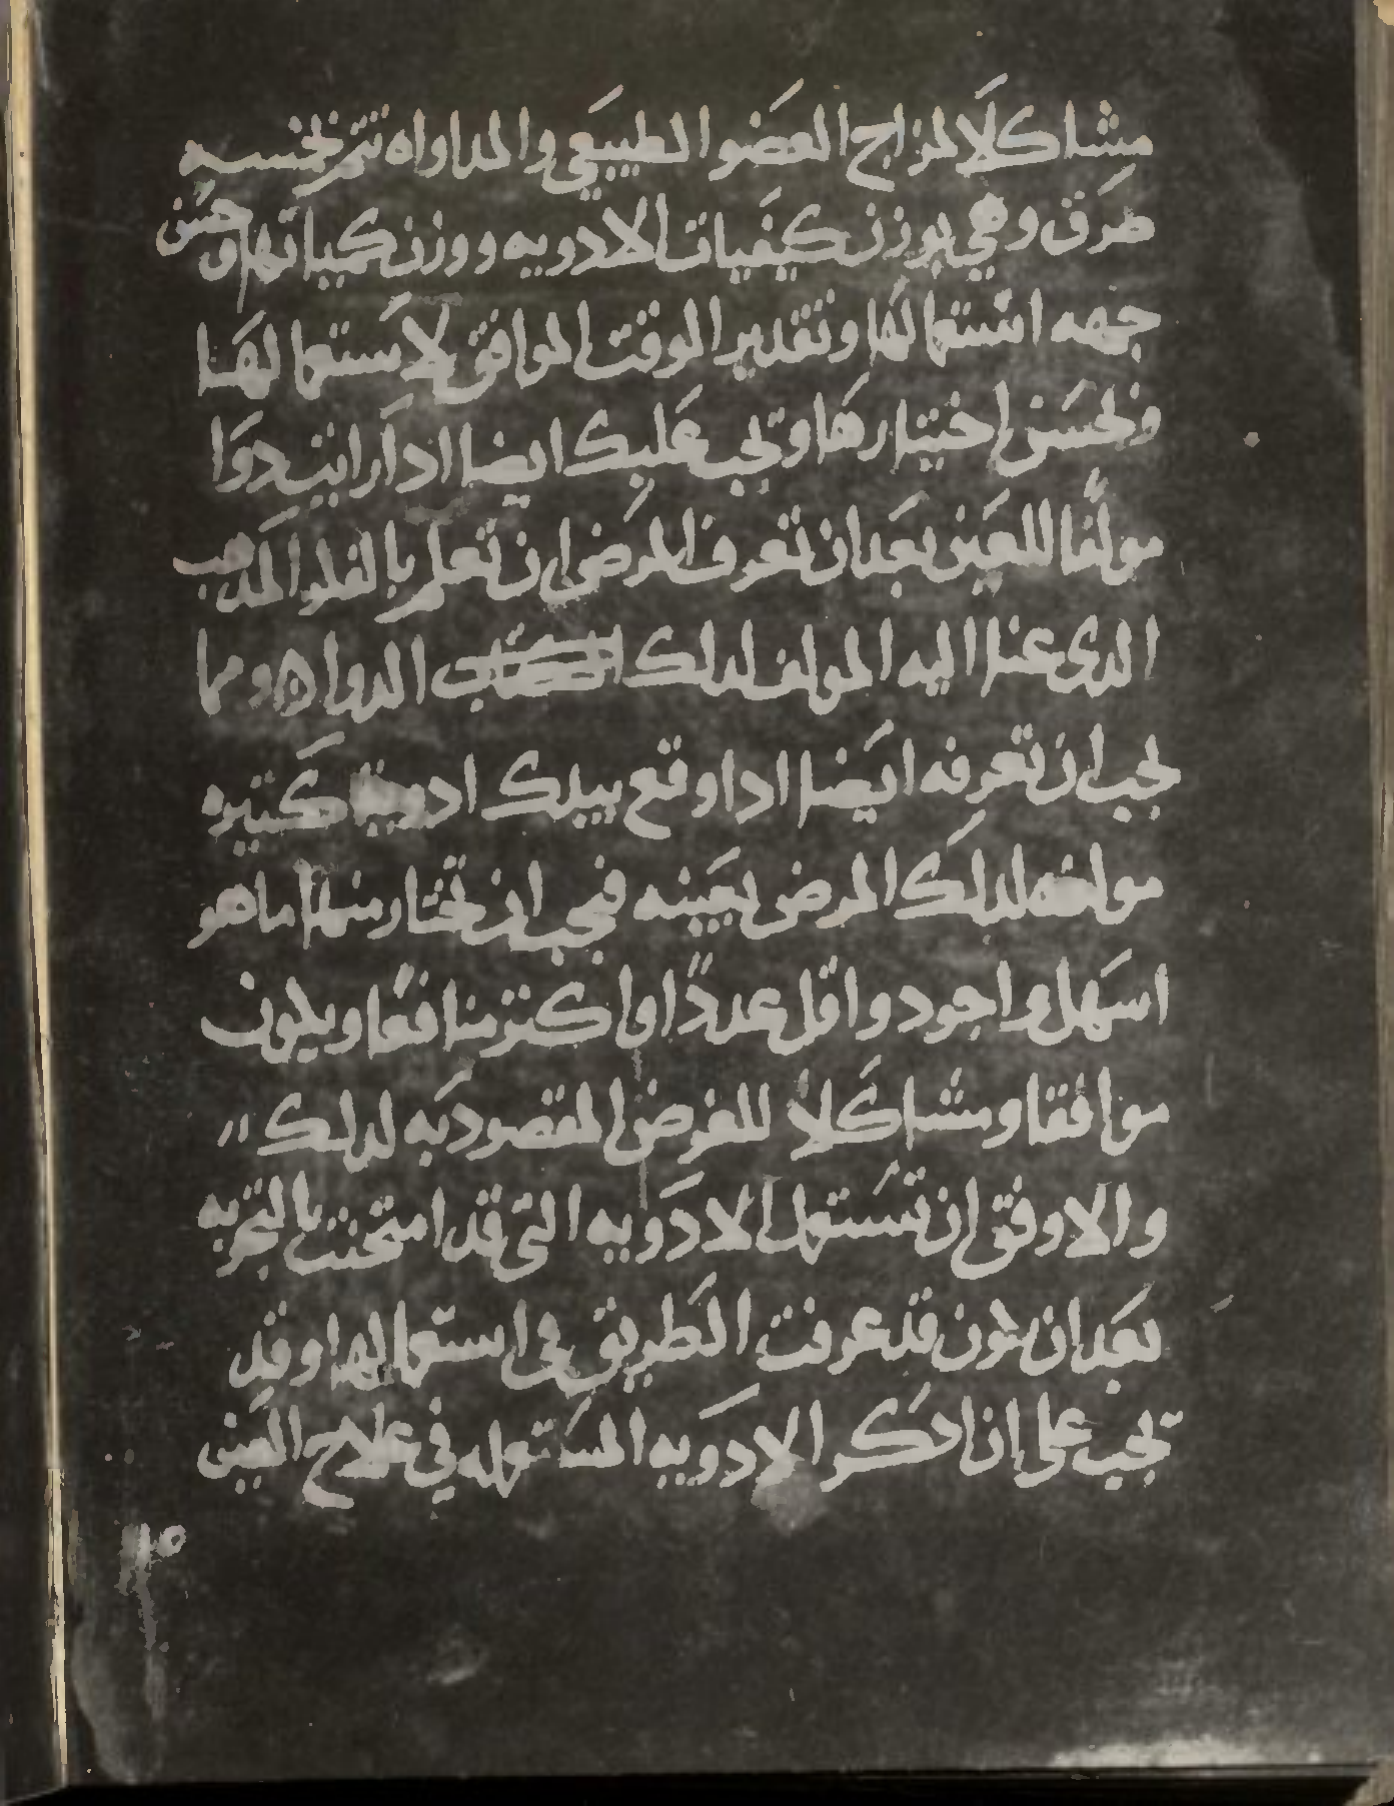 مشاكلا لمزاج العضو الطبيعي والمداواه تتم بخمسه
طرق وهي بوزن كيفيات الادويه ووزن كمياتها وحسن
جهه استعمالها وتقدير الوقت الموافق لاستعمالها
وبحسن اختيارها ويجب عليك ايضا ادا رايت دوا
مولفا للعين بعد ان تعرف المرض ان تعلم بالقلو المدهب
الدى عنا اليه المولف لدلك الدوا ومما
يجب ان تعرفه ايضا ادا وقع بيدك ادويه كتيره
مولفه لدلك المرض بعينه فيجب ان تختار منها ما هو
اسهل واجود واقل عددا واكتر منافعا ويكون
موافقا ومشاكلا للغرض المقصود به لدلك
والاوفق ان تستعمل الادويه التي قد امتحنت بالتجربه
بعد ان تكون قد عرفت الطريق في استعمالها وقد
يجب على ان ادكر الادويه المستعمله في علاج العين